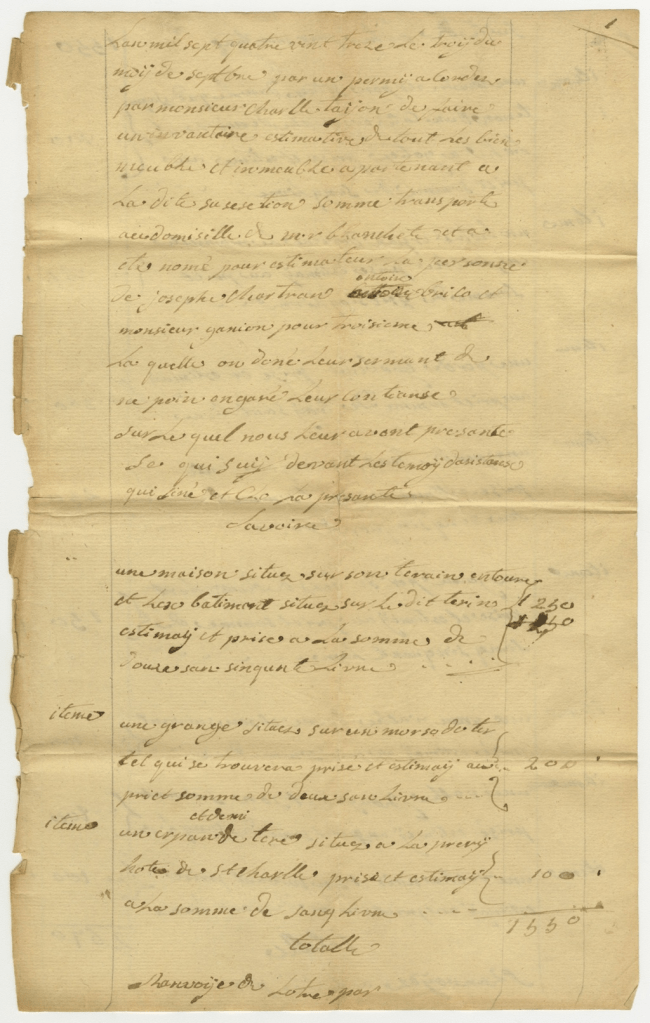 1
Lan mil sept quatre vint treze Le troij du
moij de septbre par un permij acordez
par monsieur Charlle tajon de Laire
un invantaire estimative de tout Les bien
meuble et inmeuble apartenant a
La dite susesetion somme transporté
audomisille de mr blanchete et a
eté nomé pour estimateur La personne
de josephe Chartran antoine brila et
monsieur ganion pour troisieme
La quelle on doné Leur sermant de
ne poin engaré Leur contianse
sur Le quel nous Leur avont presanté
Se qui suij devant Les temoij dasistanse
qui siné et Clo La presante
Savoire
une maison situez sur son terain entoure
et Les batimant situez sur Le dit terin 1250
estimaij et prise a La somme de
douze san sinqunt Livre
iteme une grange sitaez sur un morso de ter
tel qui se trouvera prisé et estimaij au 200
priet somme de deux san Livre
et demi
iteme un erpan de tere situez a La prerij
hote de St Charlle prisé et estimaij 100
a La somme de sanq Livre
1550
totalle
Ranvoije de Lotre par